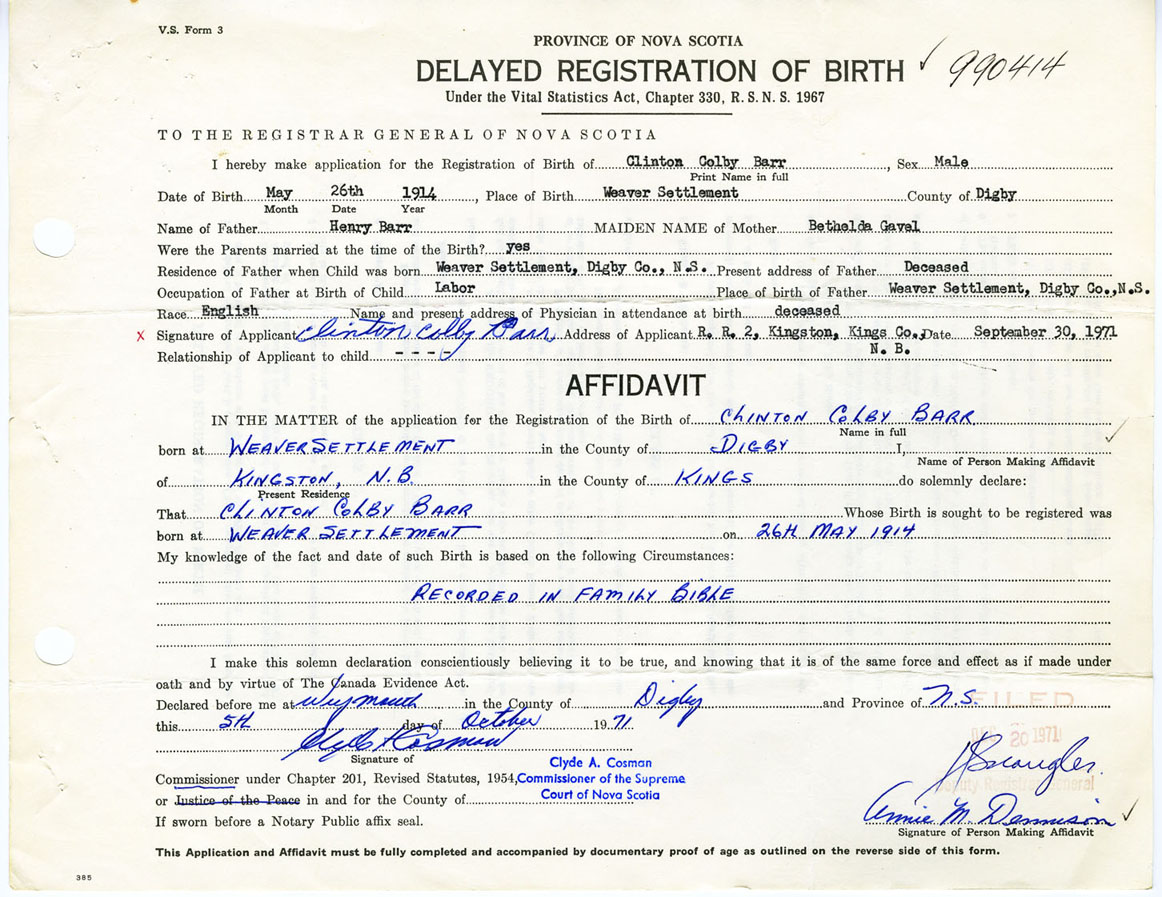 V.S. Form 3
PROVINCE OF NOVA SCOTIA
DELAYED REGISTRATION OF BIRTH ✓ 990414
Under the Vital Statistics Act, Chapter 330, R. S. N. S. 1967
TO THE REGISTRAR GENERAL OF NOVA SCOTIA
I hereby make application for the Registration of Birth of Clinton Colby Barr, Sex Male
Print Name in full
Date of Birth May 26th 1914, Place of Birth Weaver Settlement County of Digby
Month Date Year
Name of Father Henry Barr MAIDEN NAME of Mother Bethelda Gavel
Were the Parents married at the time of the Birth? yes
Residence of Father when Child was born Weaver Settlement, Digby Co., N.S. Present address of Father Deceased
Occupation of Father at Birth of Child Labor Place of birth of Father Weaver Settlement, Digby Co., N.S.
Race English Name and present address of Physician in attendance at birth deceased
X Signature of Applicant Clinton Colby Barr Address of Applicant R. R. 2, Kingston, Kings Co., Date September 30, 1971
Relationship of Applicant to child - - - - N. B.
AFFIDAVIT
IN THE MATTER of the application for the Registration of the Birth of CLINTON COLBY BARR
Name in full ✓
born at WEAVER SETTLEMENT in the County of DIGBY I,
Name of Person Making Affidavit
of KINGSTON, N.B. in the County of KINGS do solemnly declare:
Present Residence
That CLINTON COLBY BARR Whose Birth is sought to be registered was
born at WEAVER SETTLEMENT on 26H MAY 1914
My knowledge of the fact and date of such Birth is based on the following Circumstances:
RECORDED IN FAMILY BIBLE
I make this solemn declaration conscientiously believing it to be true, and knowing that it is of the same force and effect as if made under
oath and by virtue of The Canada Evidence Act.
Declared before me at Weymouth in the County of Digby and Province of N.S.
FILED
this 5H day of October 1971
20 1971
Clyde A Cosman
Signature of
Clyde A. Cosman
Commissioner under Chapter 201, Revised Statutes, 1954, Commissioner of the Supreme
Deputy Registrar General
or Justice of the Peace in and for the County of Court of Nova Scotia
Annie M. Dennison ✓
If sworn before a Notary Public affix seal.
Signature of Person Making Affidavit
This Application and Affidavit must be fully completed and accompanied by documentary proof of age as outlined on the reverse side of this form.
385